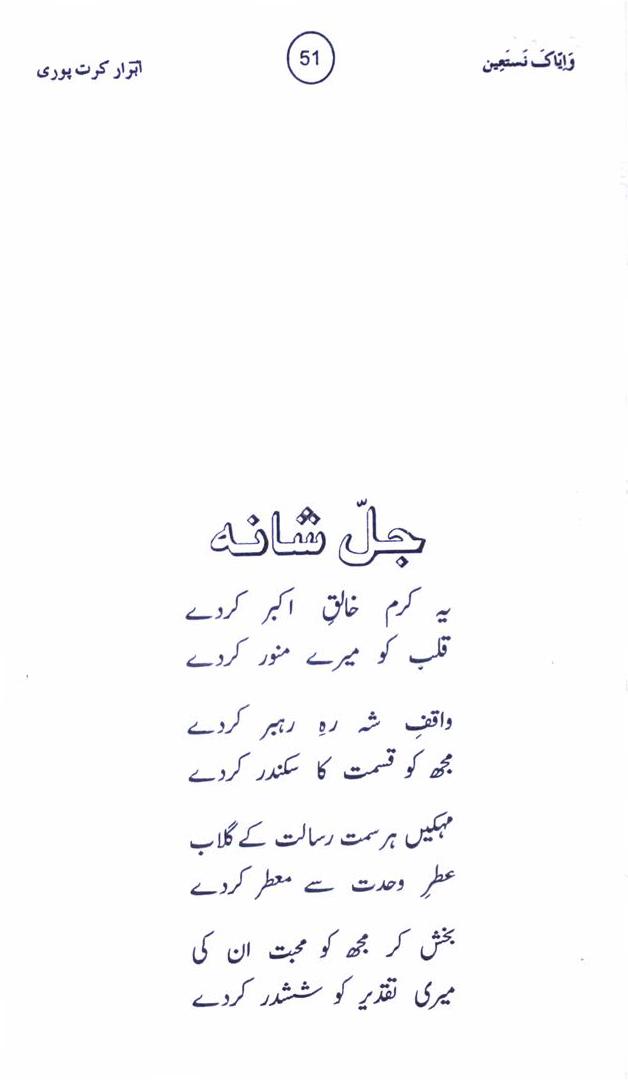 وَاِیّاکَ نَستَعِین
51
ابرار کرت پوری
جلّ شانہ
یہ کرم خالقِ اکبر کردے
قلب کو میرے منور کردے
واقفِ شہ رہِ رہبر کردے
مجھ کو قسمت کا سکندر کردے
مہکیں ہر سمت رسالت کے گلاب
عطرِ وحدت سے معطر کردے
بخش کر مجھ کو محبت ان کی
میری تقدیر کو ششدر کردے